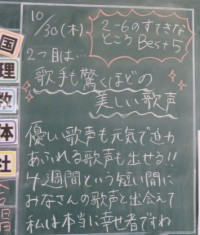 10/30(木)
2-6のすてきな
ところBest5
2つ目は…
歌手も驚くほどの
美しい歌声
優しい歌声も元気で迫力
あふれる歌声も出せる!!
4週間という短い間に
みなさんの歌声と出会えて
私は本当に幸せ者ですわ
国
理
数
体
社